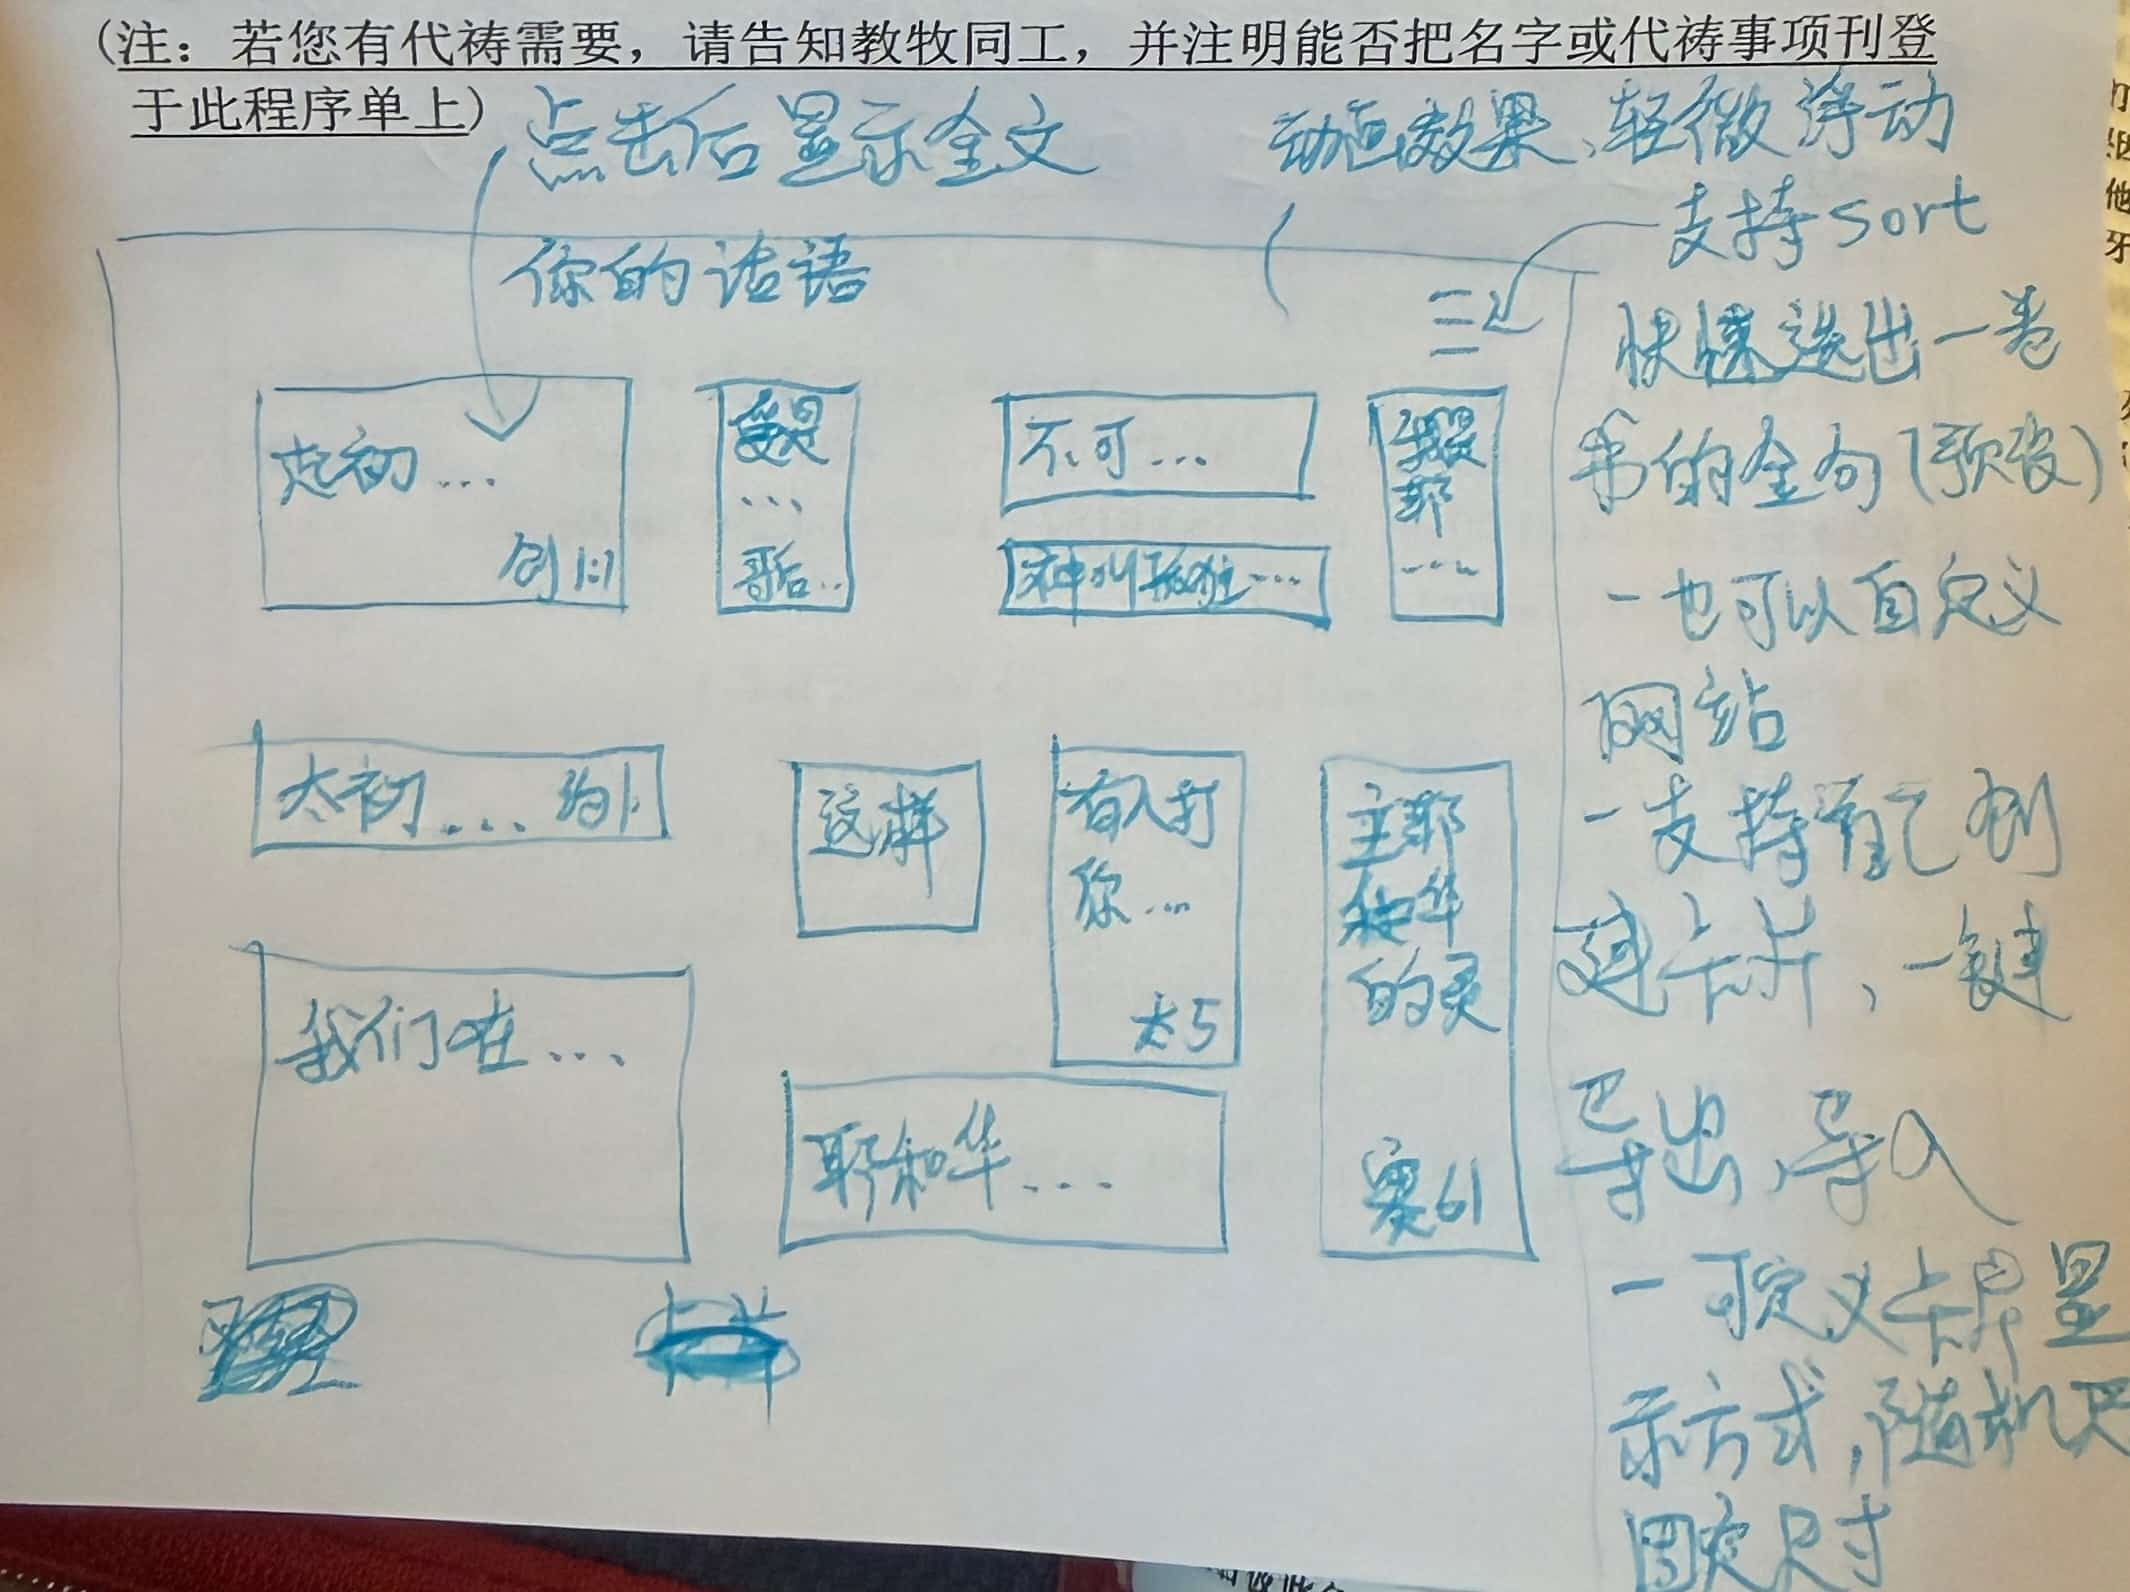 (注：若您有代祷需要，请告知教牧同工，并注明能否把名字或代祷事项刊登
于此程序单上)
点击后显示全文
动画效果、轻微浮动
你的话语
支持sort
快速选出一卷
书的金句(预设)
-也可以自定义
网站
-支持自己创
建卡片，一键
导出、导入
-可定义卡片显
示方式，随机尺
固定尺寸
起初...
创1:1
爱是
...
哥后..
不可...
神叫孤独...
耶
....
太初... 约1:
这样
有人打
你...
太5
主耶
和华
的灵
赛61
我们在...
耶和华...
卡片